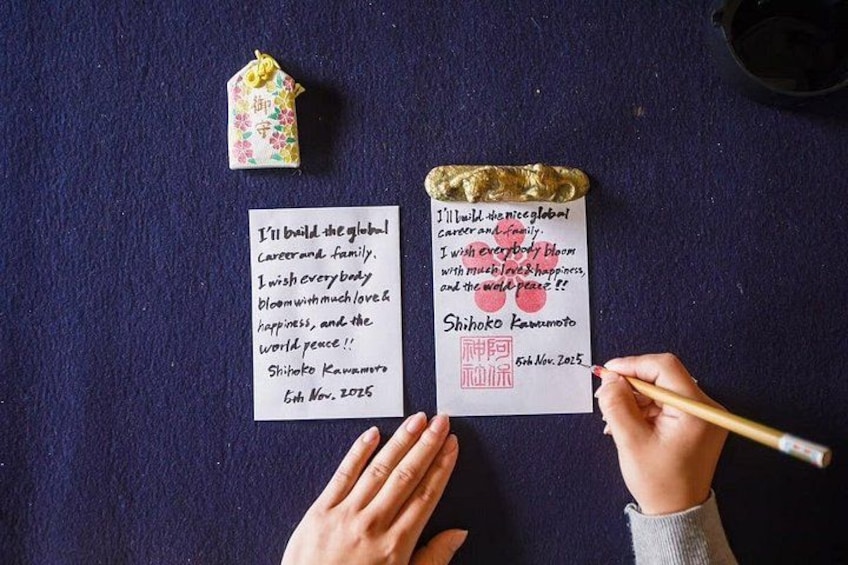 御守
I'll build the global
career and family.
I wish everybody
bloom with much love &
happiness, and the
world peace!!
Shihoko Kawamoto
5th Nov. 2025
I'll build the nice global
career and family.
I wish everybody bloom
with much love & happiness,
and the wold peace!!
Shihoko Kawamoto
阿保
神社
5th Nov. 2025